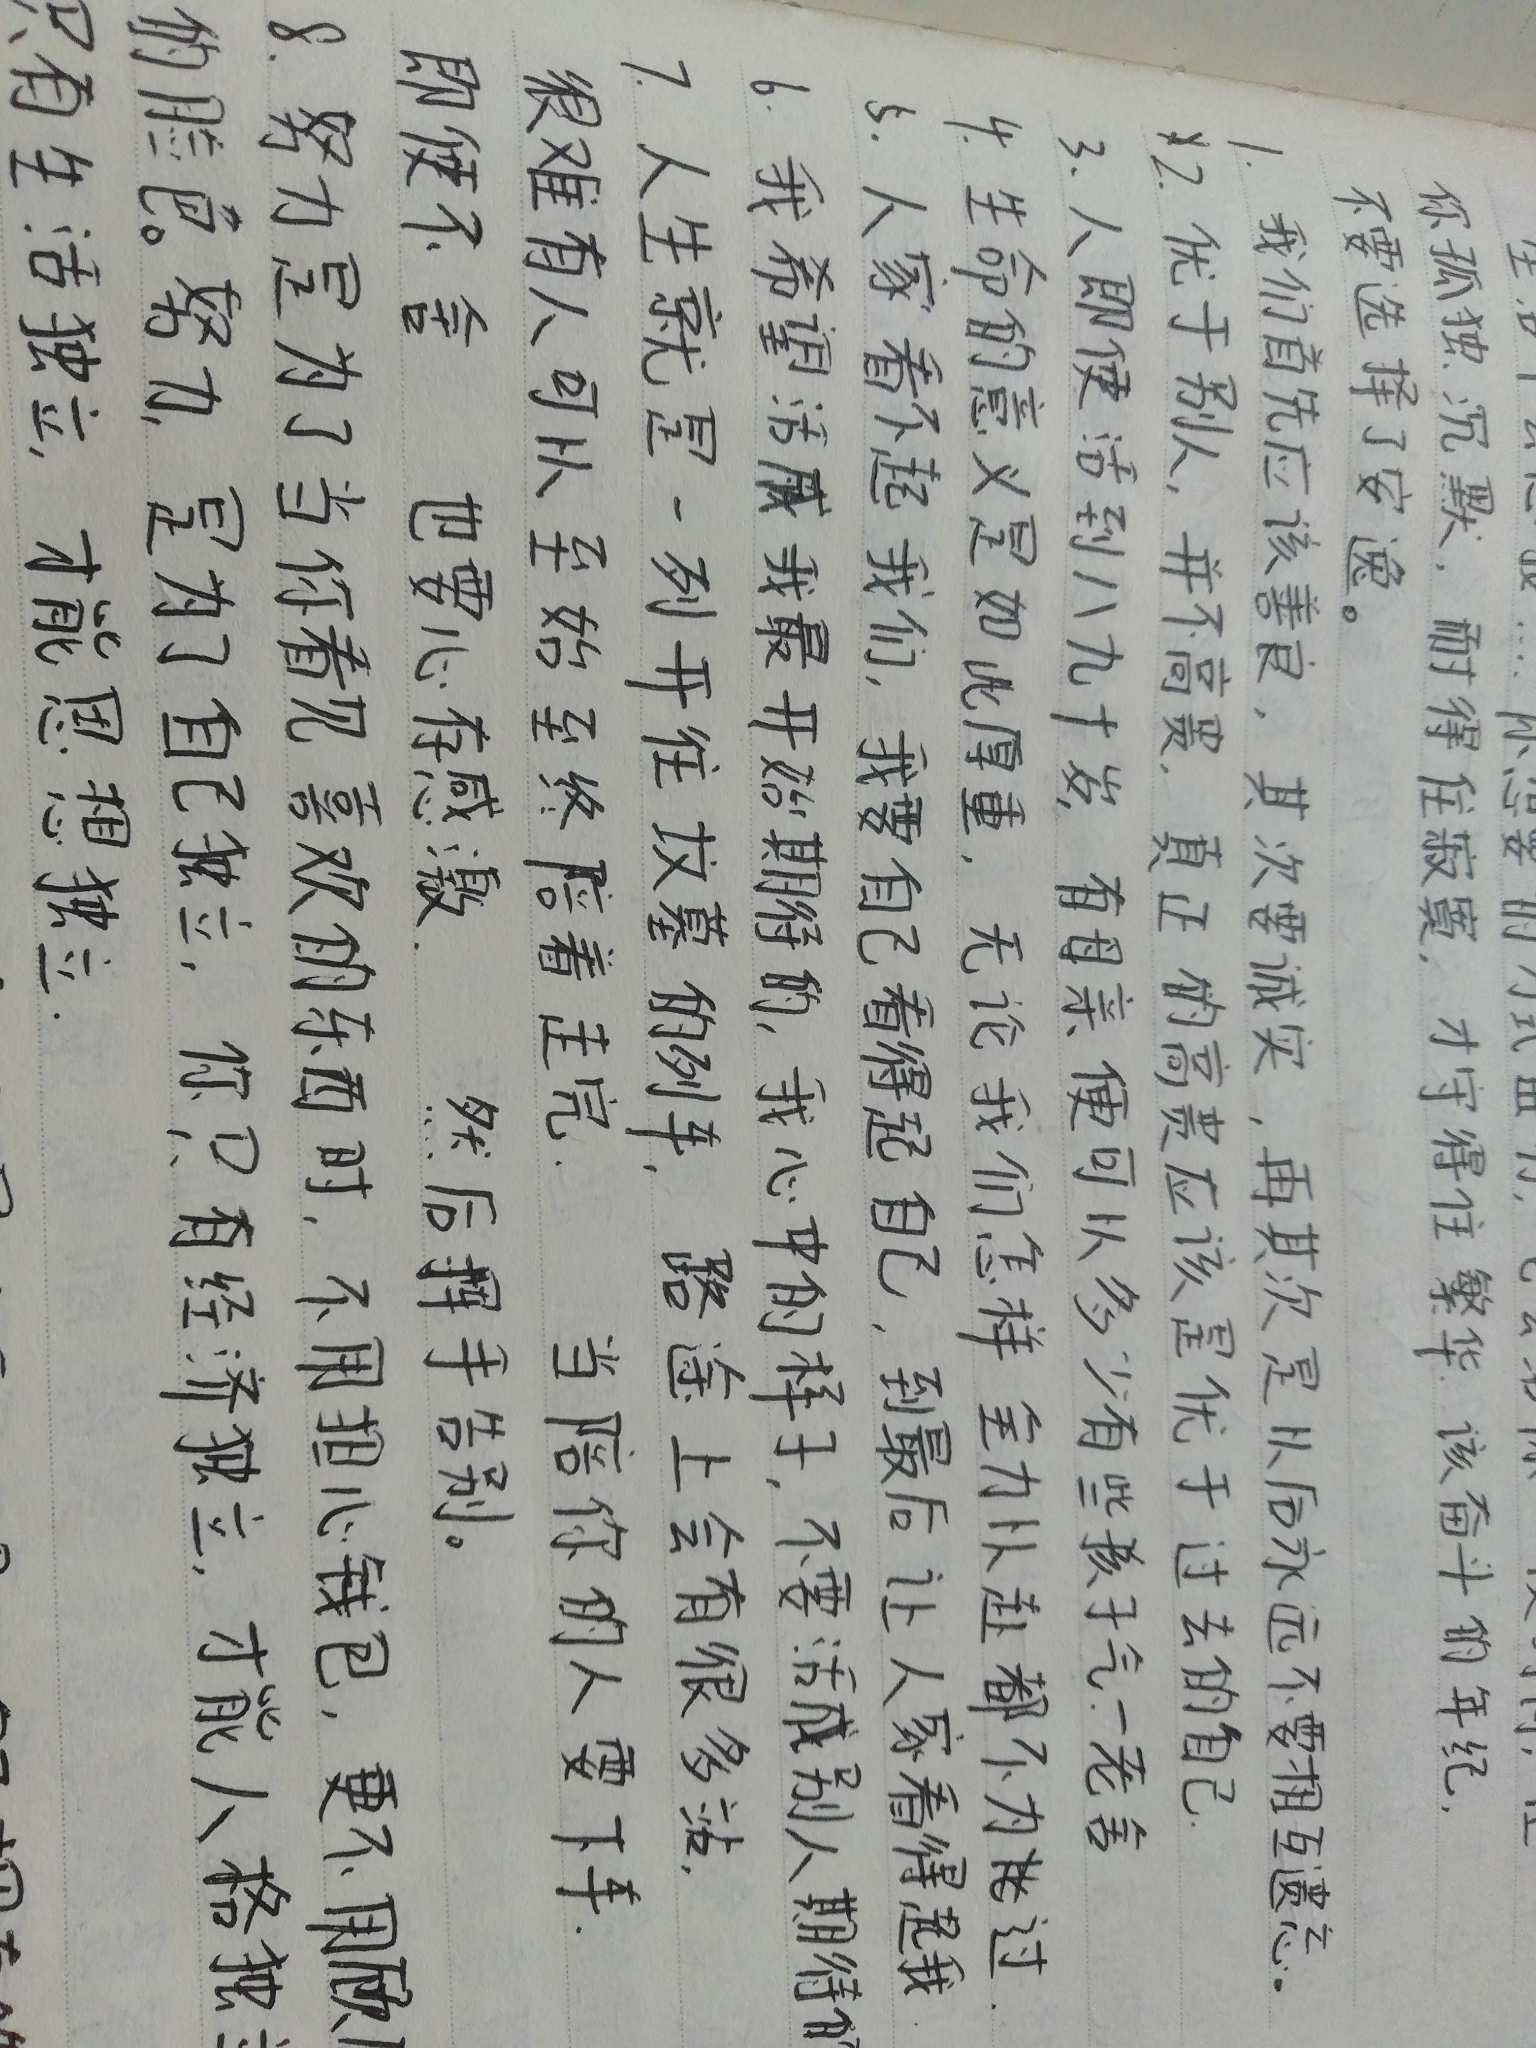 你孤独.沉默.耐得住寂寞.才守得住繁华.该奋斗的年纪.
不要选择了安逸。
1. 我们首先应该善良.其次要诚实,再其次是从后永远不要相互遗忘。
2. 优于别人,并不高贵.真正的高贵应该是优于过去的自己.
3. 人即使活到八九十岁,有母亲便可以多少有些孩子气.一老舍
4. 生命的意义是如此厚重,无论我们怎样全力以赴都不为过.
5. 人家看不起我们,我要自己看得起自己,到最后让人家看得起我
6. 我希望活成我最开始期待的,我心中的样子,不要活成别人期待的
7. 人生就是一列开往坟墓的列车,路途上会有很多站,
很难有人可以至始至终陪着走完.当陪你的人要下车.
即使不舍 也要心存感激. 然后挥手告别。
8. 努力是为了当你看见喜欢的东西时,不用担心钱包,更不用
的脸色。努力,是为了自己独立,你只有经济独立,才能人格独
只有生活独立,才能思想独立.